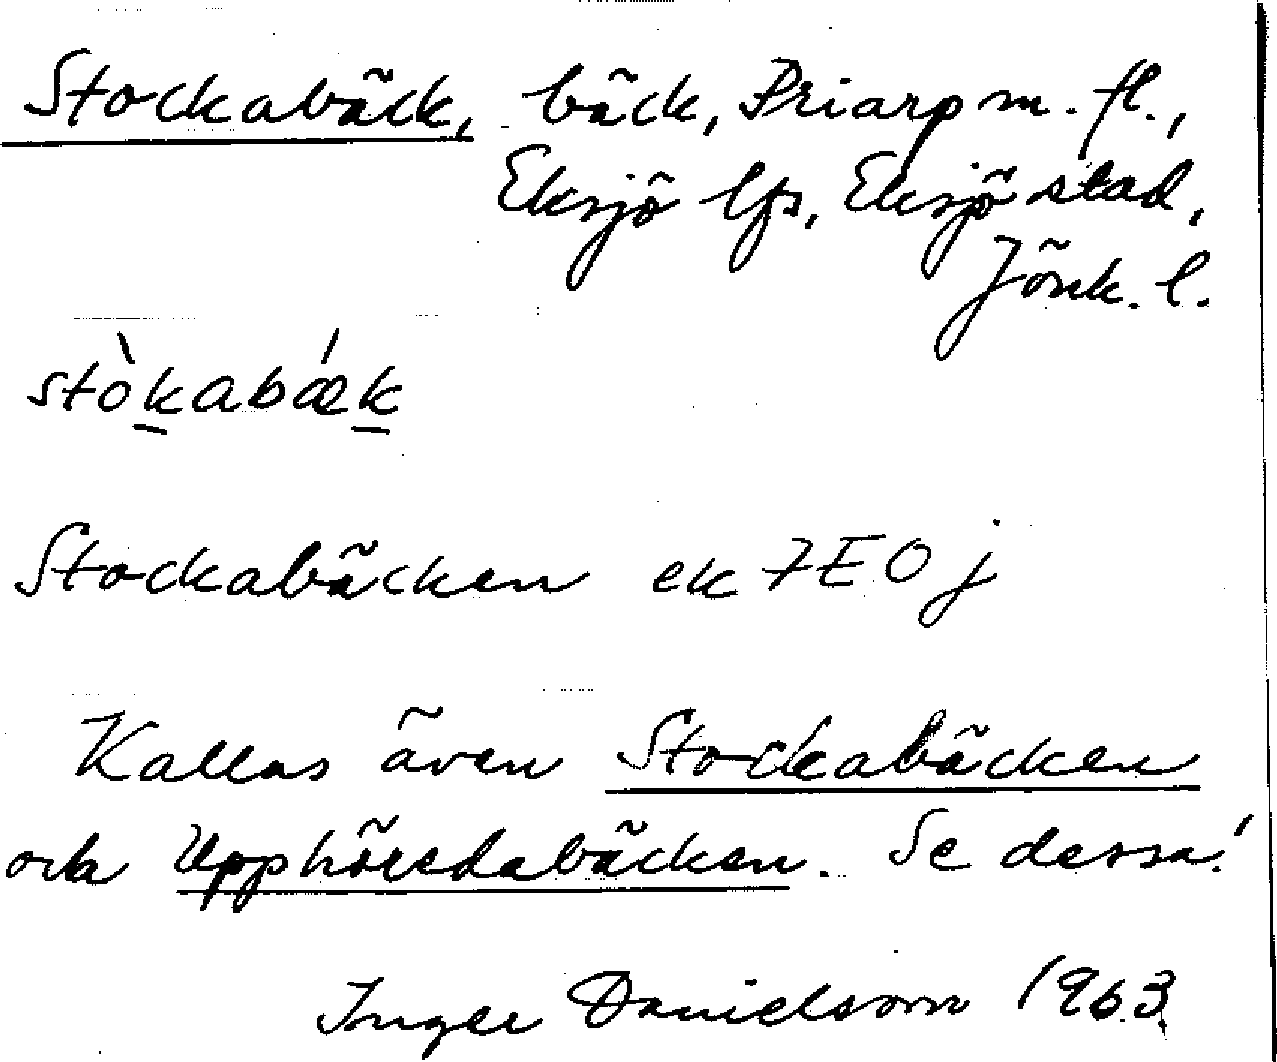 Stockabäck, bäck, Priarp m. fl.,
Eksjö lfs, Eksjö stad,
Jönk. l.
stòkabǽk
Stockabäcken ek 7E0j
Kallas även Stockabäcken
och Upphöredabäcken. Se dessa!
Inger Danielsson 1963